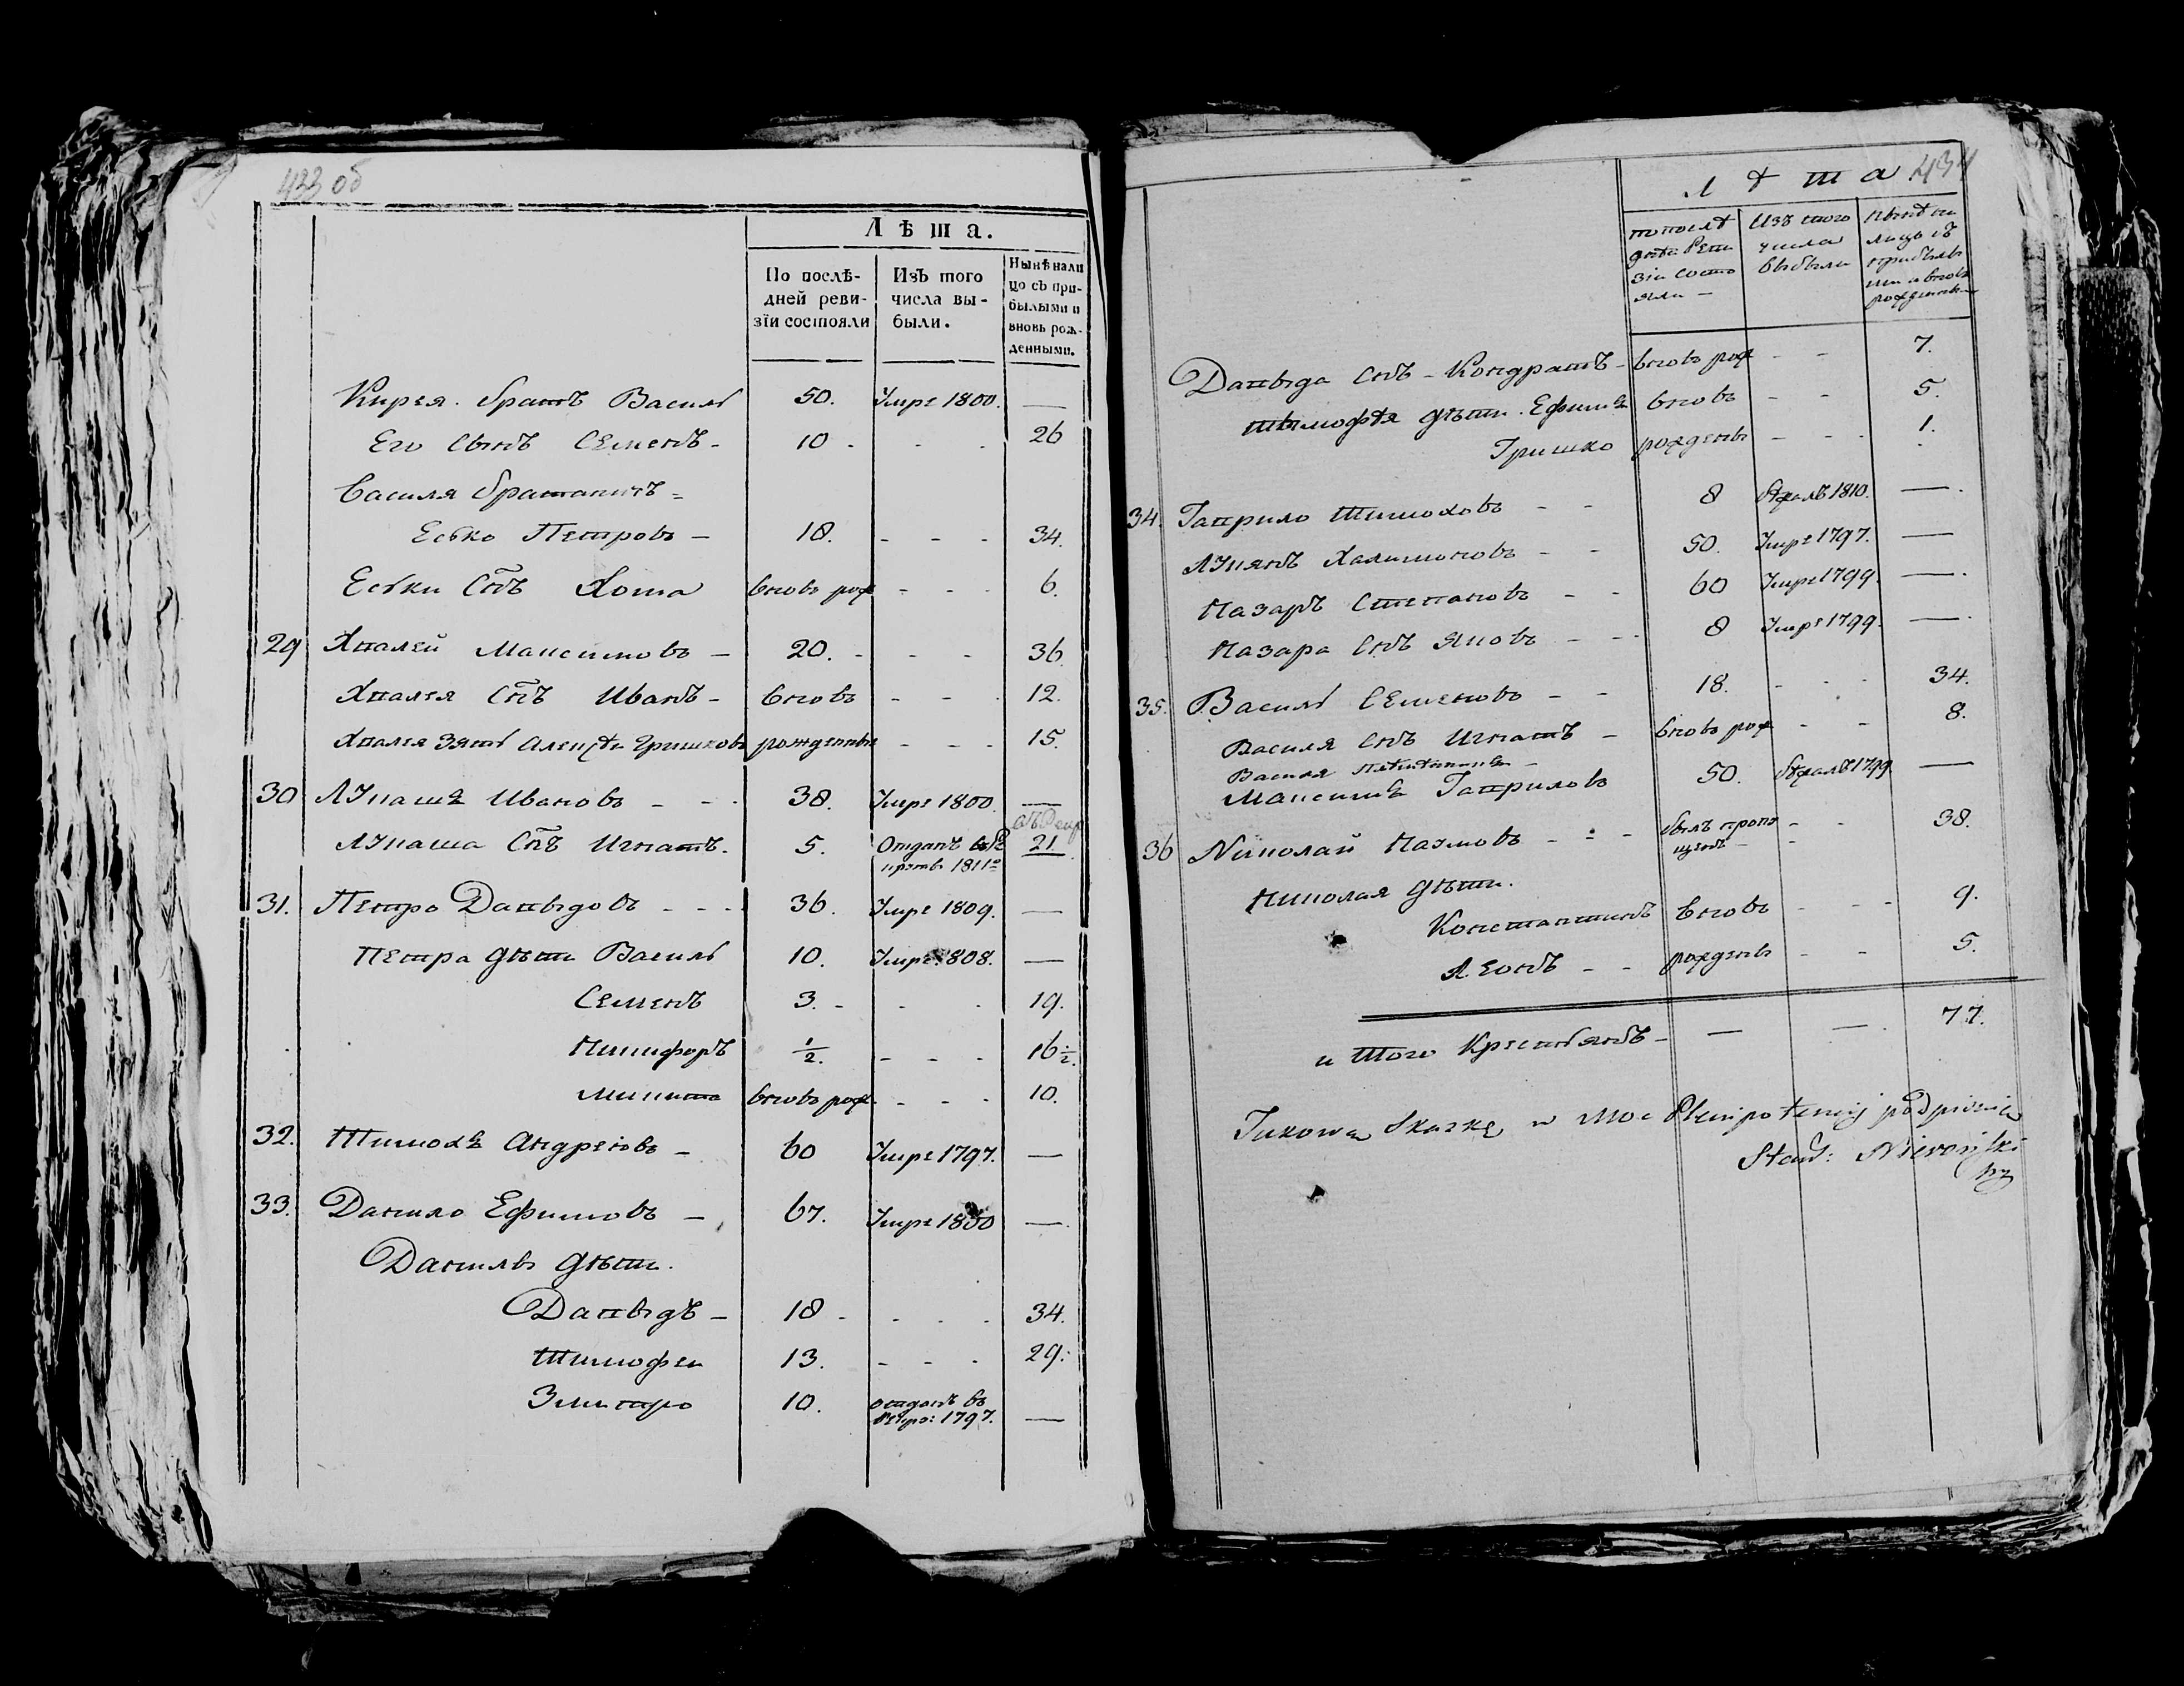 433 об
Лѣта.
По послѣ-
дней реви-
зїи состояли
Изъ того
числа вы-
были.
Нынѣ нали
цо съ при-
былыми и
вновь рож-
денными.
Кирея братъ Василь 50. Умре 1800. —
Его сынъ Семенъ - 10 - - - 26
Василя братаничъ =
Еско Петровъ — 18. - - - 34.
Еськи Снъ Хома вновь рож - - - 6.
29 Хвалей Максимовъ — 20. - - - 36.
Хвалея Снъ Иванъ - вновь - - - 12.
Хвалея Зять Алексѣй Гришковъ рожденные - - - 15.
30 Лукашъ Ивановъ - - - 38. Умре 1800. —
Лукаша Снъ Игнатъ. 5. Отданъ въ Ре
круты 1811го 21.
31. Петро Давыдовъ - - - 36. Умре 1809. —
Петра дѣти Василь 10. Умре 1808. —
Семенъ 3. - - - 19.
Никифоръ ½. - - - 16½.
Микита вновь рож. - - - 10.
32. Тимохъ Андреѣвъ — 60 Умре 1797. —
33. Данило Ефимовъ — 67. Умре 1800 —
Данилы дѣти.
Давыдъ — 18 - - - - 34.
Тимофей 13. - - - 29.
Змитро 10. отданъ въ
Рекру: 1797. —
434
Лѣта
По послѣ
дней Реви
зіи состо
яли —
Изъ того
числа
выбыли
Нынѣ на
лицо съ
прибылы
ми и вновь
рожденны
Давыда Снъ - Кондратъ - вновь рож - - 7.
Тимофѣя дѣти. Ефимъ вновь - - 5.
Гришко рожденны - - - 1.
34. Гаврило Тимоховъ - - 8 бѣжалъ 1810. —
Лукянъ Халимоновъ - - 50. Умре 1797. —
Назаръ Степановъ - - 60 Умре 1799. —
Назара Снъ Яковъ - - - 8 Умре 1799. —
35. Василь Семеновъ - - 18. - - - 34.
Василя Снъ Игнатъ - вновь рож - - 8.
Василя —
Максимъ Гавриловъ 50. бѣжалъ 1799. —
36 Николай Наумовъ - - - былъ пропу
щенъ - - - 38.
Николая дѣти.
Константинъ вновь - - - 9.
Леонъ - - рожденны - - 5.
и Того Крестьянъ - — — 77.
Takową Skazkę w moc Plenipotencij podpisuię